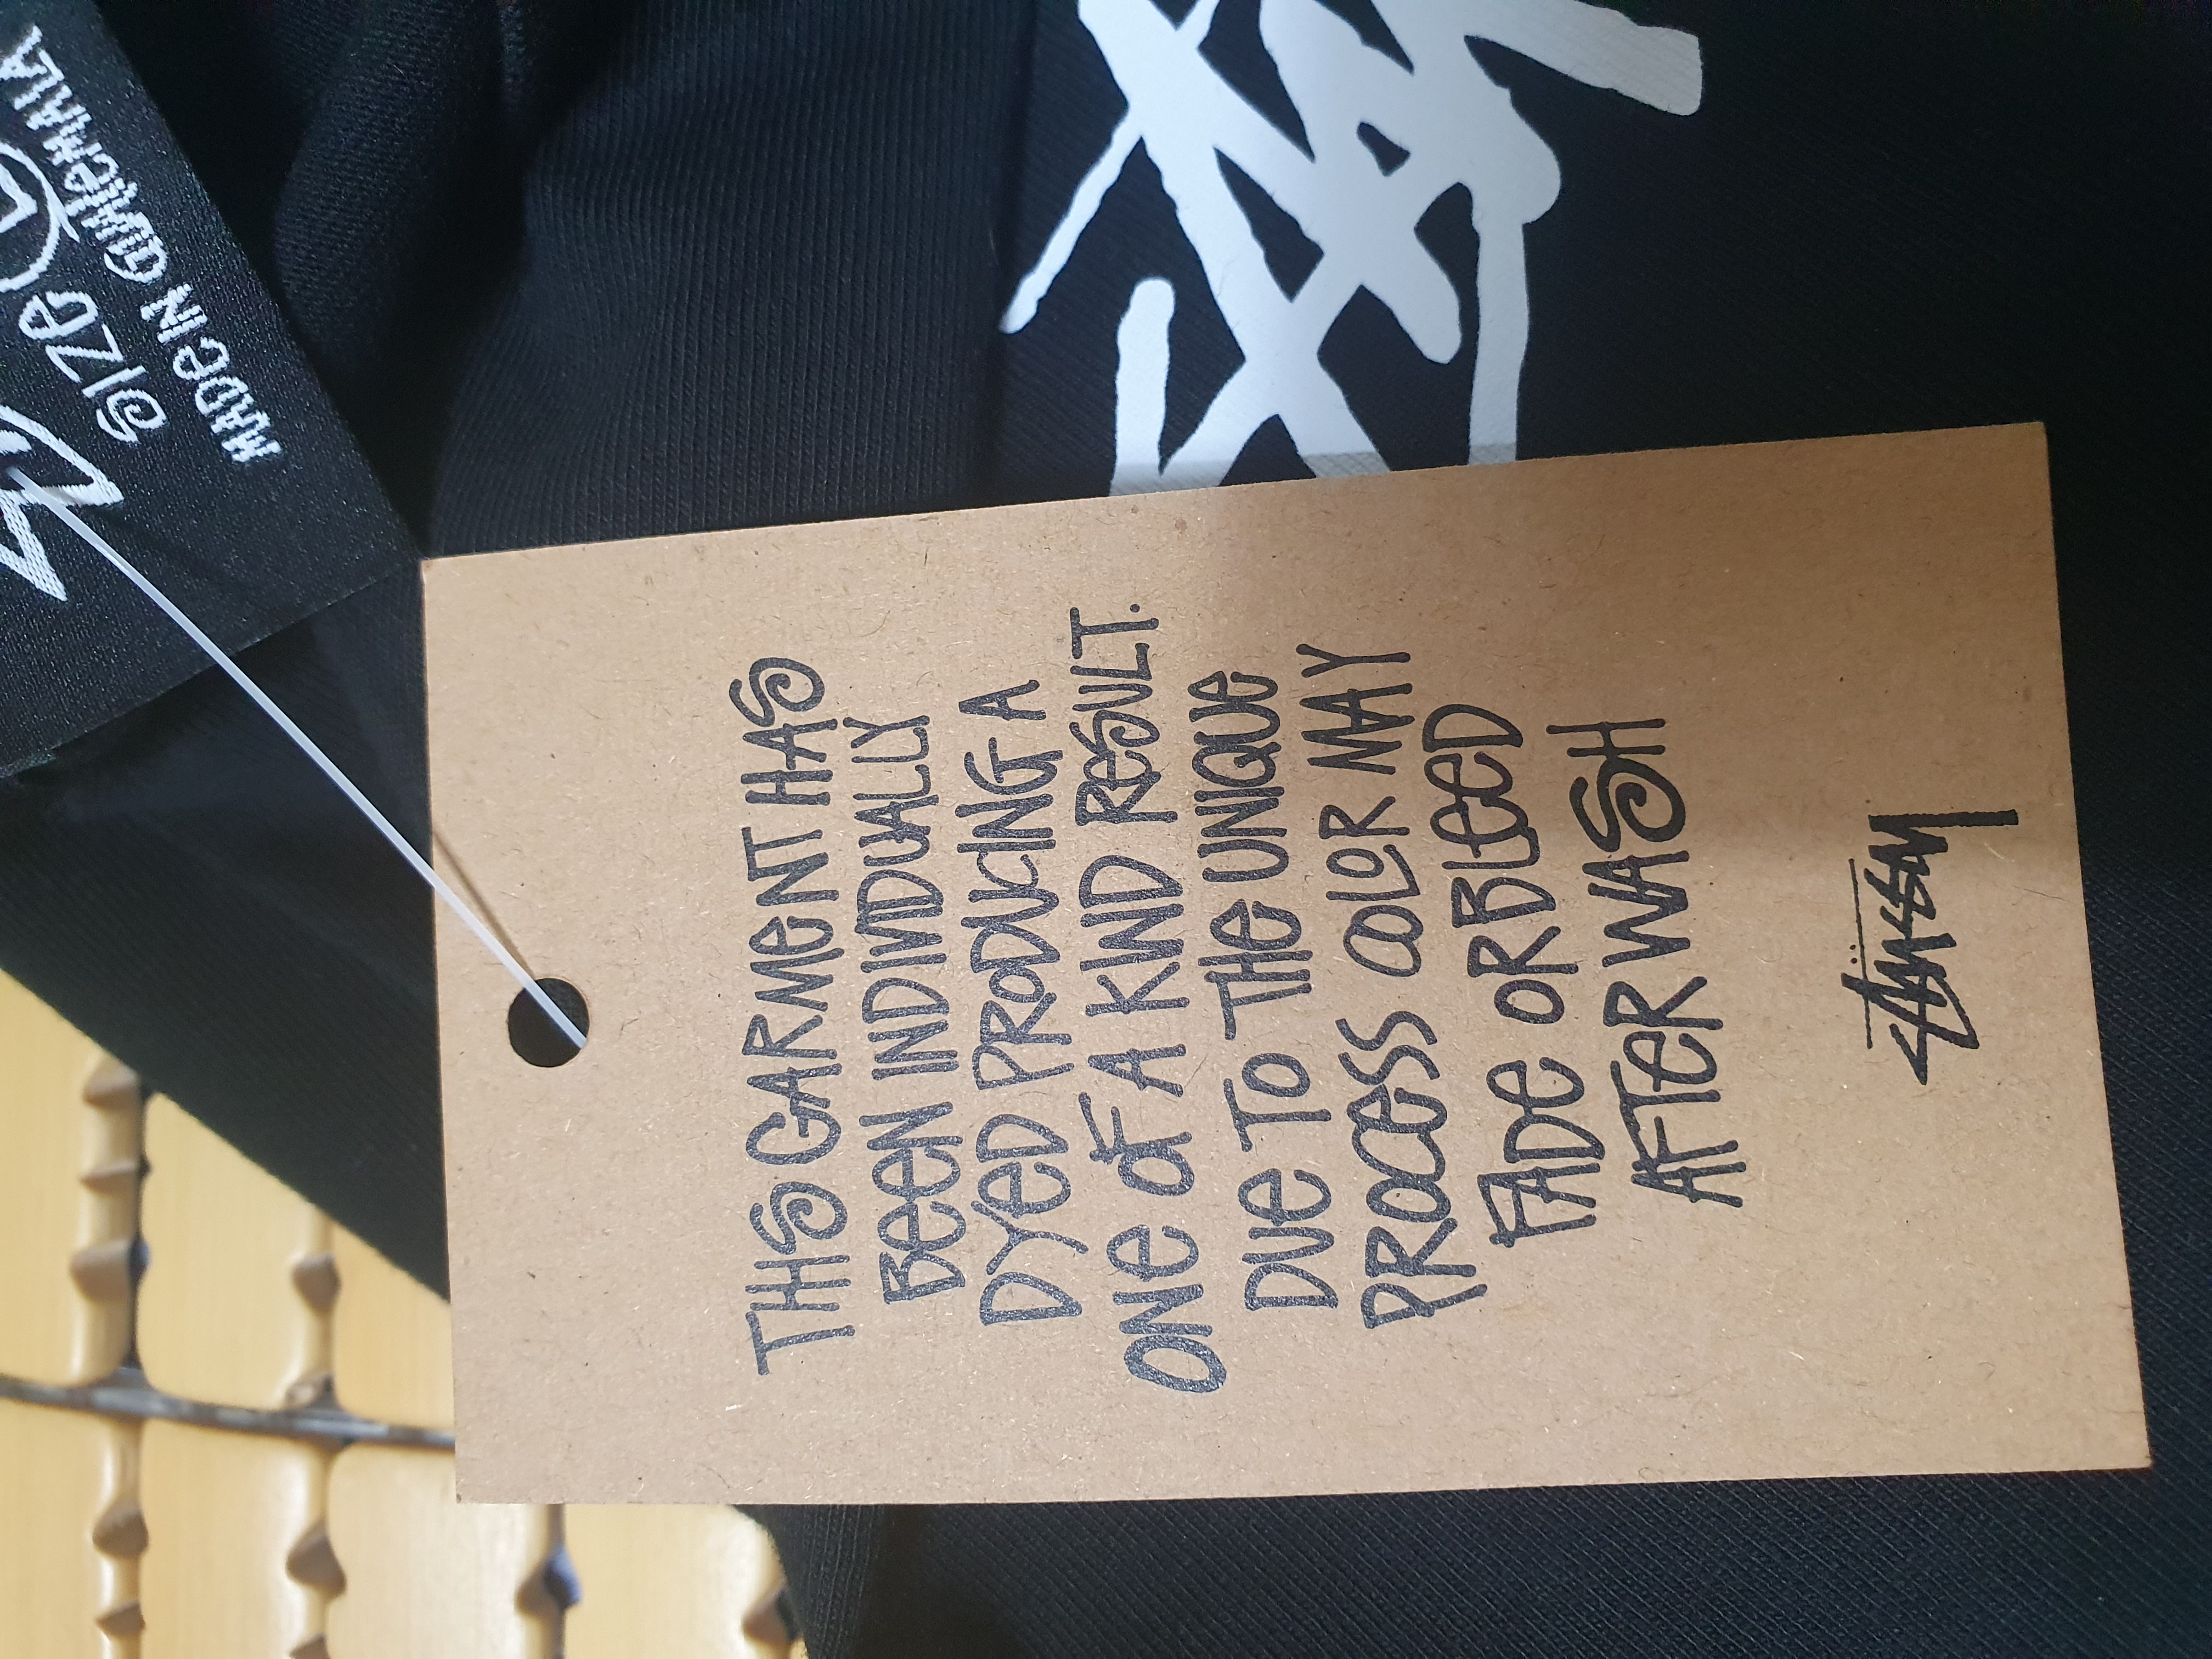 THIS GARMENT HAS
BEEN INDIVIDUALLY
DYED PRODUCING A
ONE OF A KIND RESULT.
DUE TO THE UNIQUE
PROCESS COLOR MAY
FADE OR BLEED
AFTER WASH
STÜSSY
SIZE
MADE IN GUATEMALA